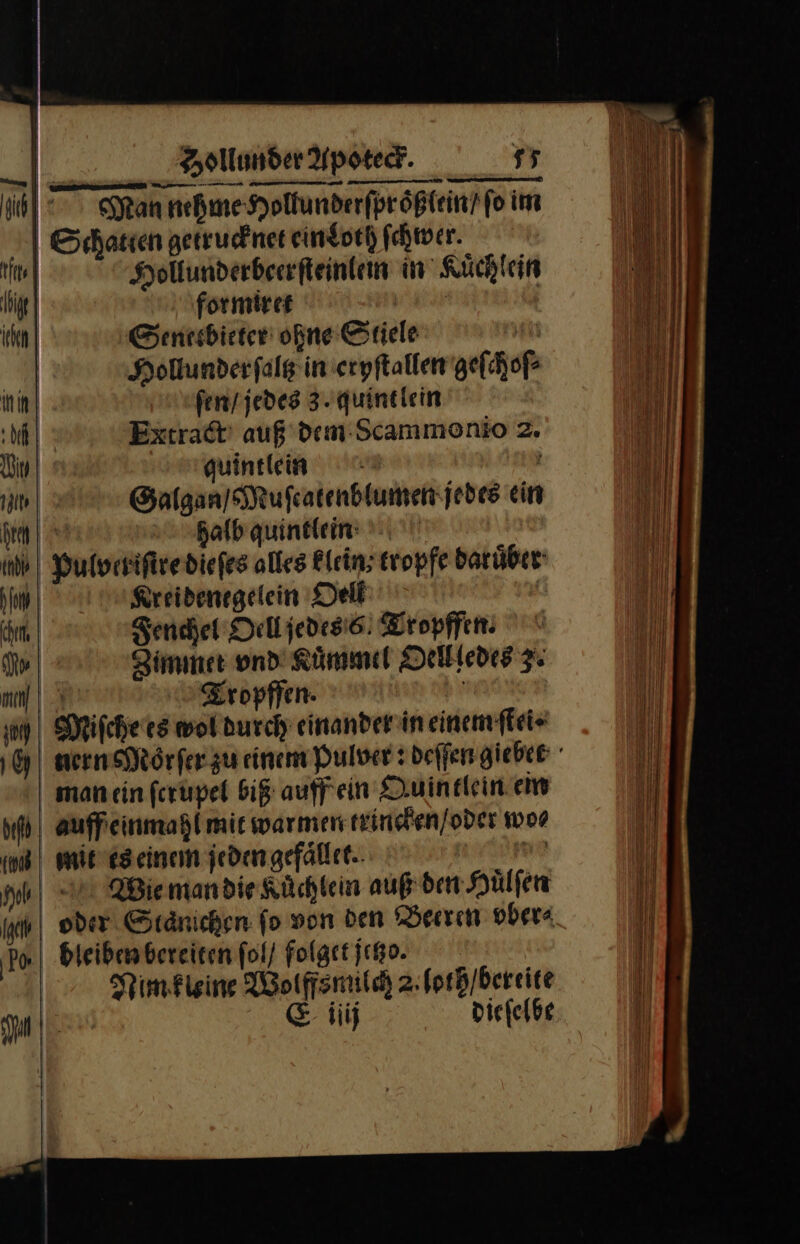 Hollunder Apoteck. 55
Man nehme Hollunderſproͤßlein/ ſo im
Schatten getrucknet ein Loth ſchwer.
Hollunderbeerſteinlein in Kuͤchlein
formiret
Senetbleter ohne Stiele
Hollunderſaltz in cryſtallen geſchoſ⸗
ſen/ jedes 3. quintlein
Extract auß dem Scammonio 2.
quintlein
Galgan/ Muſcatenblumen jedes ein
halb quintlein
Pulveriſire dieſes alles klein; tropfe daruͤber
Kreidenegelein Oell
Fenchel Oell jedes 6. Tropffen.
Zimmet vnd Kuͤmmel Oell jedes 3.
Tropffen.
Miſche es wol durch einander in einem ſtei⸗
nern Moͤrſer zu einem Pulver: deſſen giebet
man ein ſcrupel biß auff ein Quintlein em
auff einmahl mit warmen trincken/ oder wo⸗
mit es einem jeden gefaͤllet.
Wie man die Kuͤchlein auß den Huͤlſen
oder Staͤnichen ſo von den Beeren vber⸗
bleiben bereiten ſol/ folget jetzo.
Nim kleine Wolffsmilch 2. loth/ bereite
E iiij dieſelbe